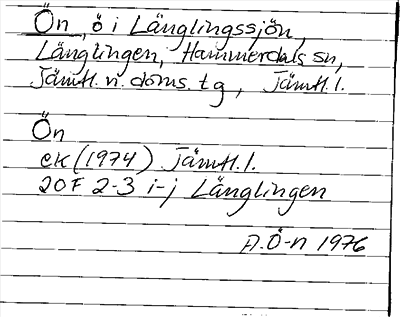 Ön, ö i Länglingssjön,
Länglingen, Hammerdals sn,
Jämtl. n. doms. tg, Jämtl. l.
Ön
ek (1974) Jämtl. l.
20F 2-3 i-j Länglingen
A.Ö-n 1976